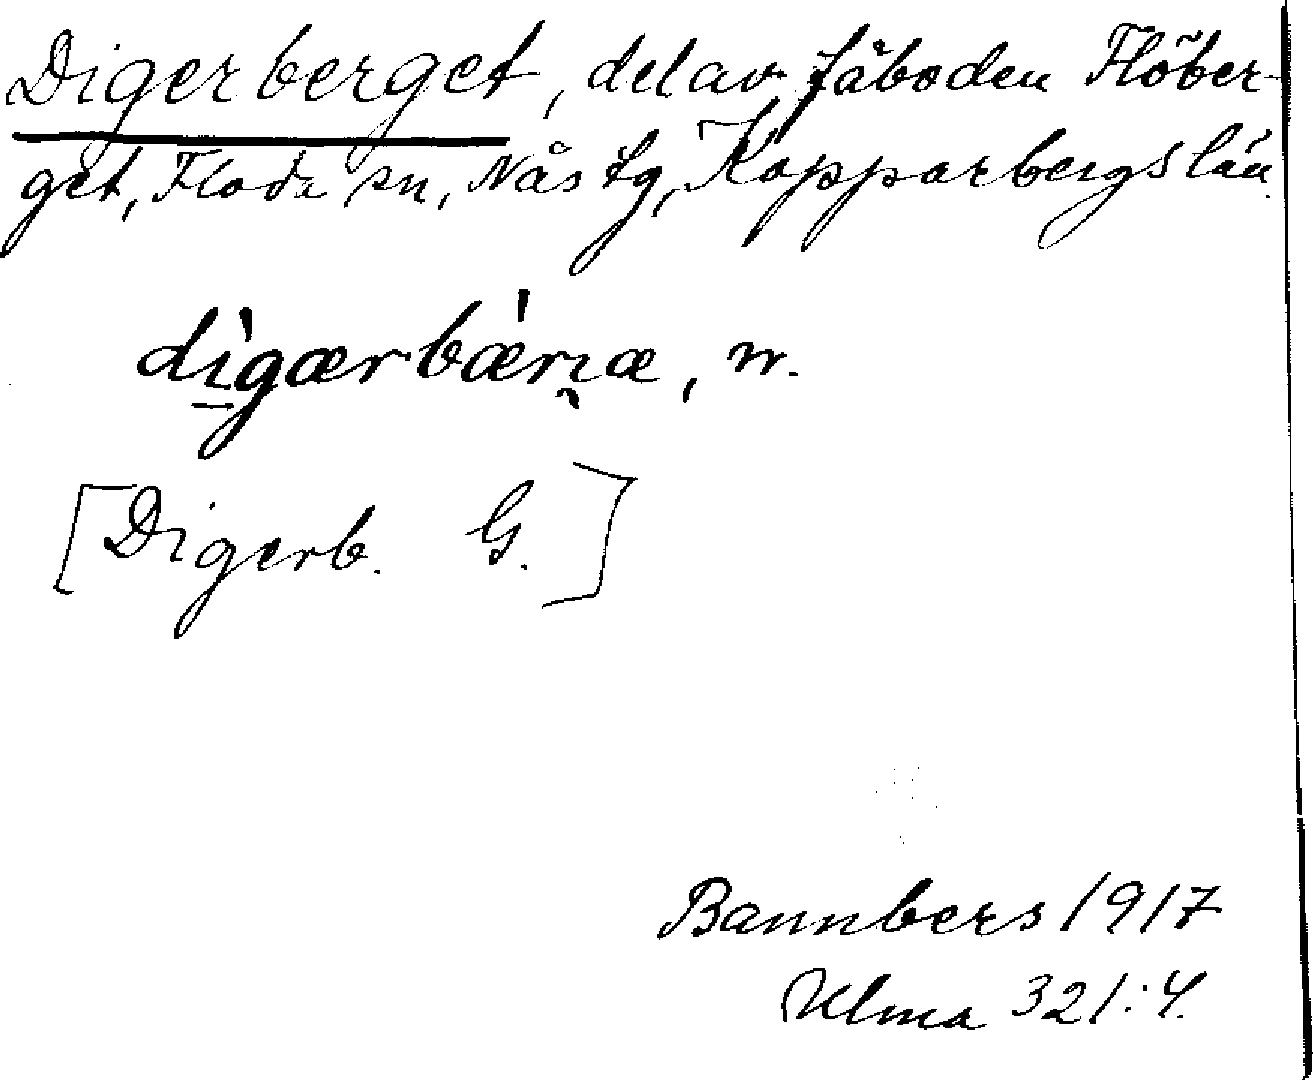 Digerberget, del av fäboden Flöber-
get, Floda sn, Nås tg, Kopparbergs län.
dìgærbæ̀rıæ, n.
[Digerb. G.]
Bannbers 1917
Ulma 321:4.